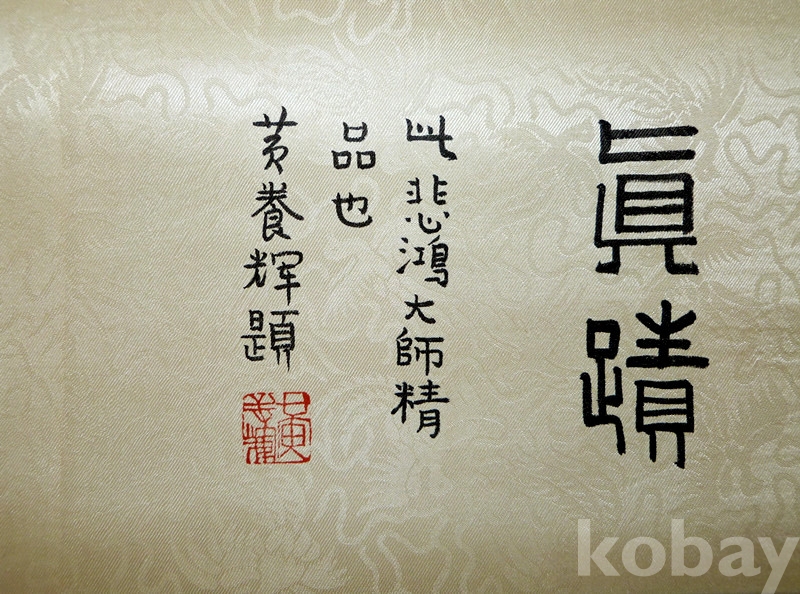 眞蹟
此悲鴻大師精
品也
黄養辉題
kobay